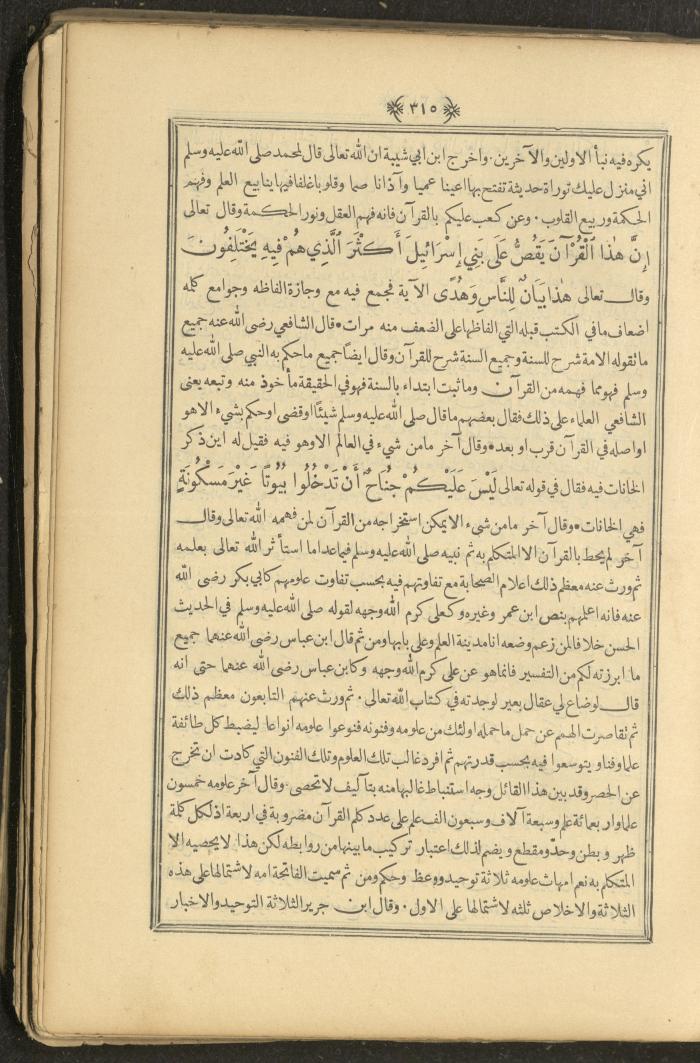 ٣١٥
يكره فيه نبأ الاولين والآخرين . واخرج ابن ابي شيبة ان الله تعالى قال لمحمد صلى الله عليه وسلم
اني منزل عليك توراة حديثة تفتح بها اعينا عميا وآذانا صما وقلوبا غلفا فيها ينابيع العلم وفهم
الحكمة وربيع القلوب . وعن كعب عليكم بالقرآن فانه فهم العقل ونور الحكمة وقال تعالى
إِنَّ هٰذَا ٱلْقُرْآنَ يَقُصُّ عَلَى بَنِي إِسْرَائِيلَ أَكْثَرَ ٱلَّذِي هُمْ فِيهِ يَخْتَلِفُونَ
وقال تعالى هٰذَا بَيَانٌ لِلنَّاسِ وَهُدًى الآية فجمع فيه مع وجازة الفاظه وجوامع كلمه
اضعاف ما في الكتب قبله التي الفاظها على الضعف منه مرات * قال الشافعي رضي الله عنه جميع
ما نقوله الامة شرح للسنة وجميع السنة شرح للقرآن وقال ايضا جميع ما حكم به النبي صلى الله عليه
وسلم فهو مما فهمه من القرآن وما ثبت ابتداء بالسنة فهو في الحقيقة مأخوذ منه وتبعه يعنى
الشافعي العلماء على ذلك فقال بعضهم ما قال صلى الله عليه وسلم شيئًا او قضى او حكم بشيء الا هو
او اصله في القرآن قرب او بعد * وقال آخر ما من شيء في العالم الا وهو فيه فقيل له اين ذكر
الخانات فيه فقال في قوله تعالى لَيْسَ عَلَيْكُمْ جُنَاحٌ أَنْ تَدْخُلُوا بُيُوتًا غَيْرَ مَسْكُونَةٍ
فهي الخانات * وقال آخر ما من شيء الا يمكن استخراجه من القرآن لمن فهمه الله تعالى وقال
آخر لم يحط بالقرآن الا المتكلم به ثم نبيه صلى الله عليه وسلم فيما عدا ما استأثر الله تعالى بعلمه
ثم ورث عنه معظم ذلك اعلام الصحابة مع تفاوتهم فيه بحسب تفاوت علومهم كابي بكر رضى الله
عنه فانه اعلمهم بنص ابن عمر وغيره وكعلى كرم الله وجهه لقوله صلى الله عليه وسلم في الحديث
الحسن خلافا لمن زعم وضعه انا مدينة العلم وعلى بابها ومن ثم قال ابن عباس رضى الله عنهما جميع
ما ابرزته لكم من التفسير فانما هو عن على كرم الله وجهه وكابن عباس رضى الله عنهما حتى انه
قال لو ضاع لي عقال بعير لوجدته في كتاب الله تعالى . ثم ورث عنهم التابعون معظم ذلك
ثم تقاصرت الهمم عن حمل ما حمله اولئك من علومه وفنونه فنوعوا علومه انواعا ليضبط كل طائفة
علما وفنا ويتوسعوا فيه بحسب قدرتهم ثم افرد غالب تلك العلوم وتلك الفنون التي كادت ان تخرج
عن الحصر وقد بين هذا القائل وجه استنباط غالبها منه بتآليف لا تحصى . وقال آخر علومه خمسون
علما واربعمائة علم وسبعة آلاف وسبعون الف علم على عدد كلم القرآن مضروبة في اربعة اذ لكل كلمة
ظهر وبطن وحد ومقطع ويضم لذلك اعتبار تركيب ما بينها من روابطه لكن هذا لا يحصيه الا
المتكلم به نعم امهات علومه ثلاثة توحيد ووعظ وحكم ومن ثم سميت الفاتحة امه لاشتمالها على هذه
الثلاثة والاخلاص ثلثه لاشتمالها على الاول . وقال ابن جرير الثلاثة التوحيد والاخبار